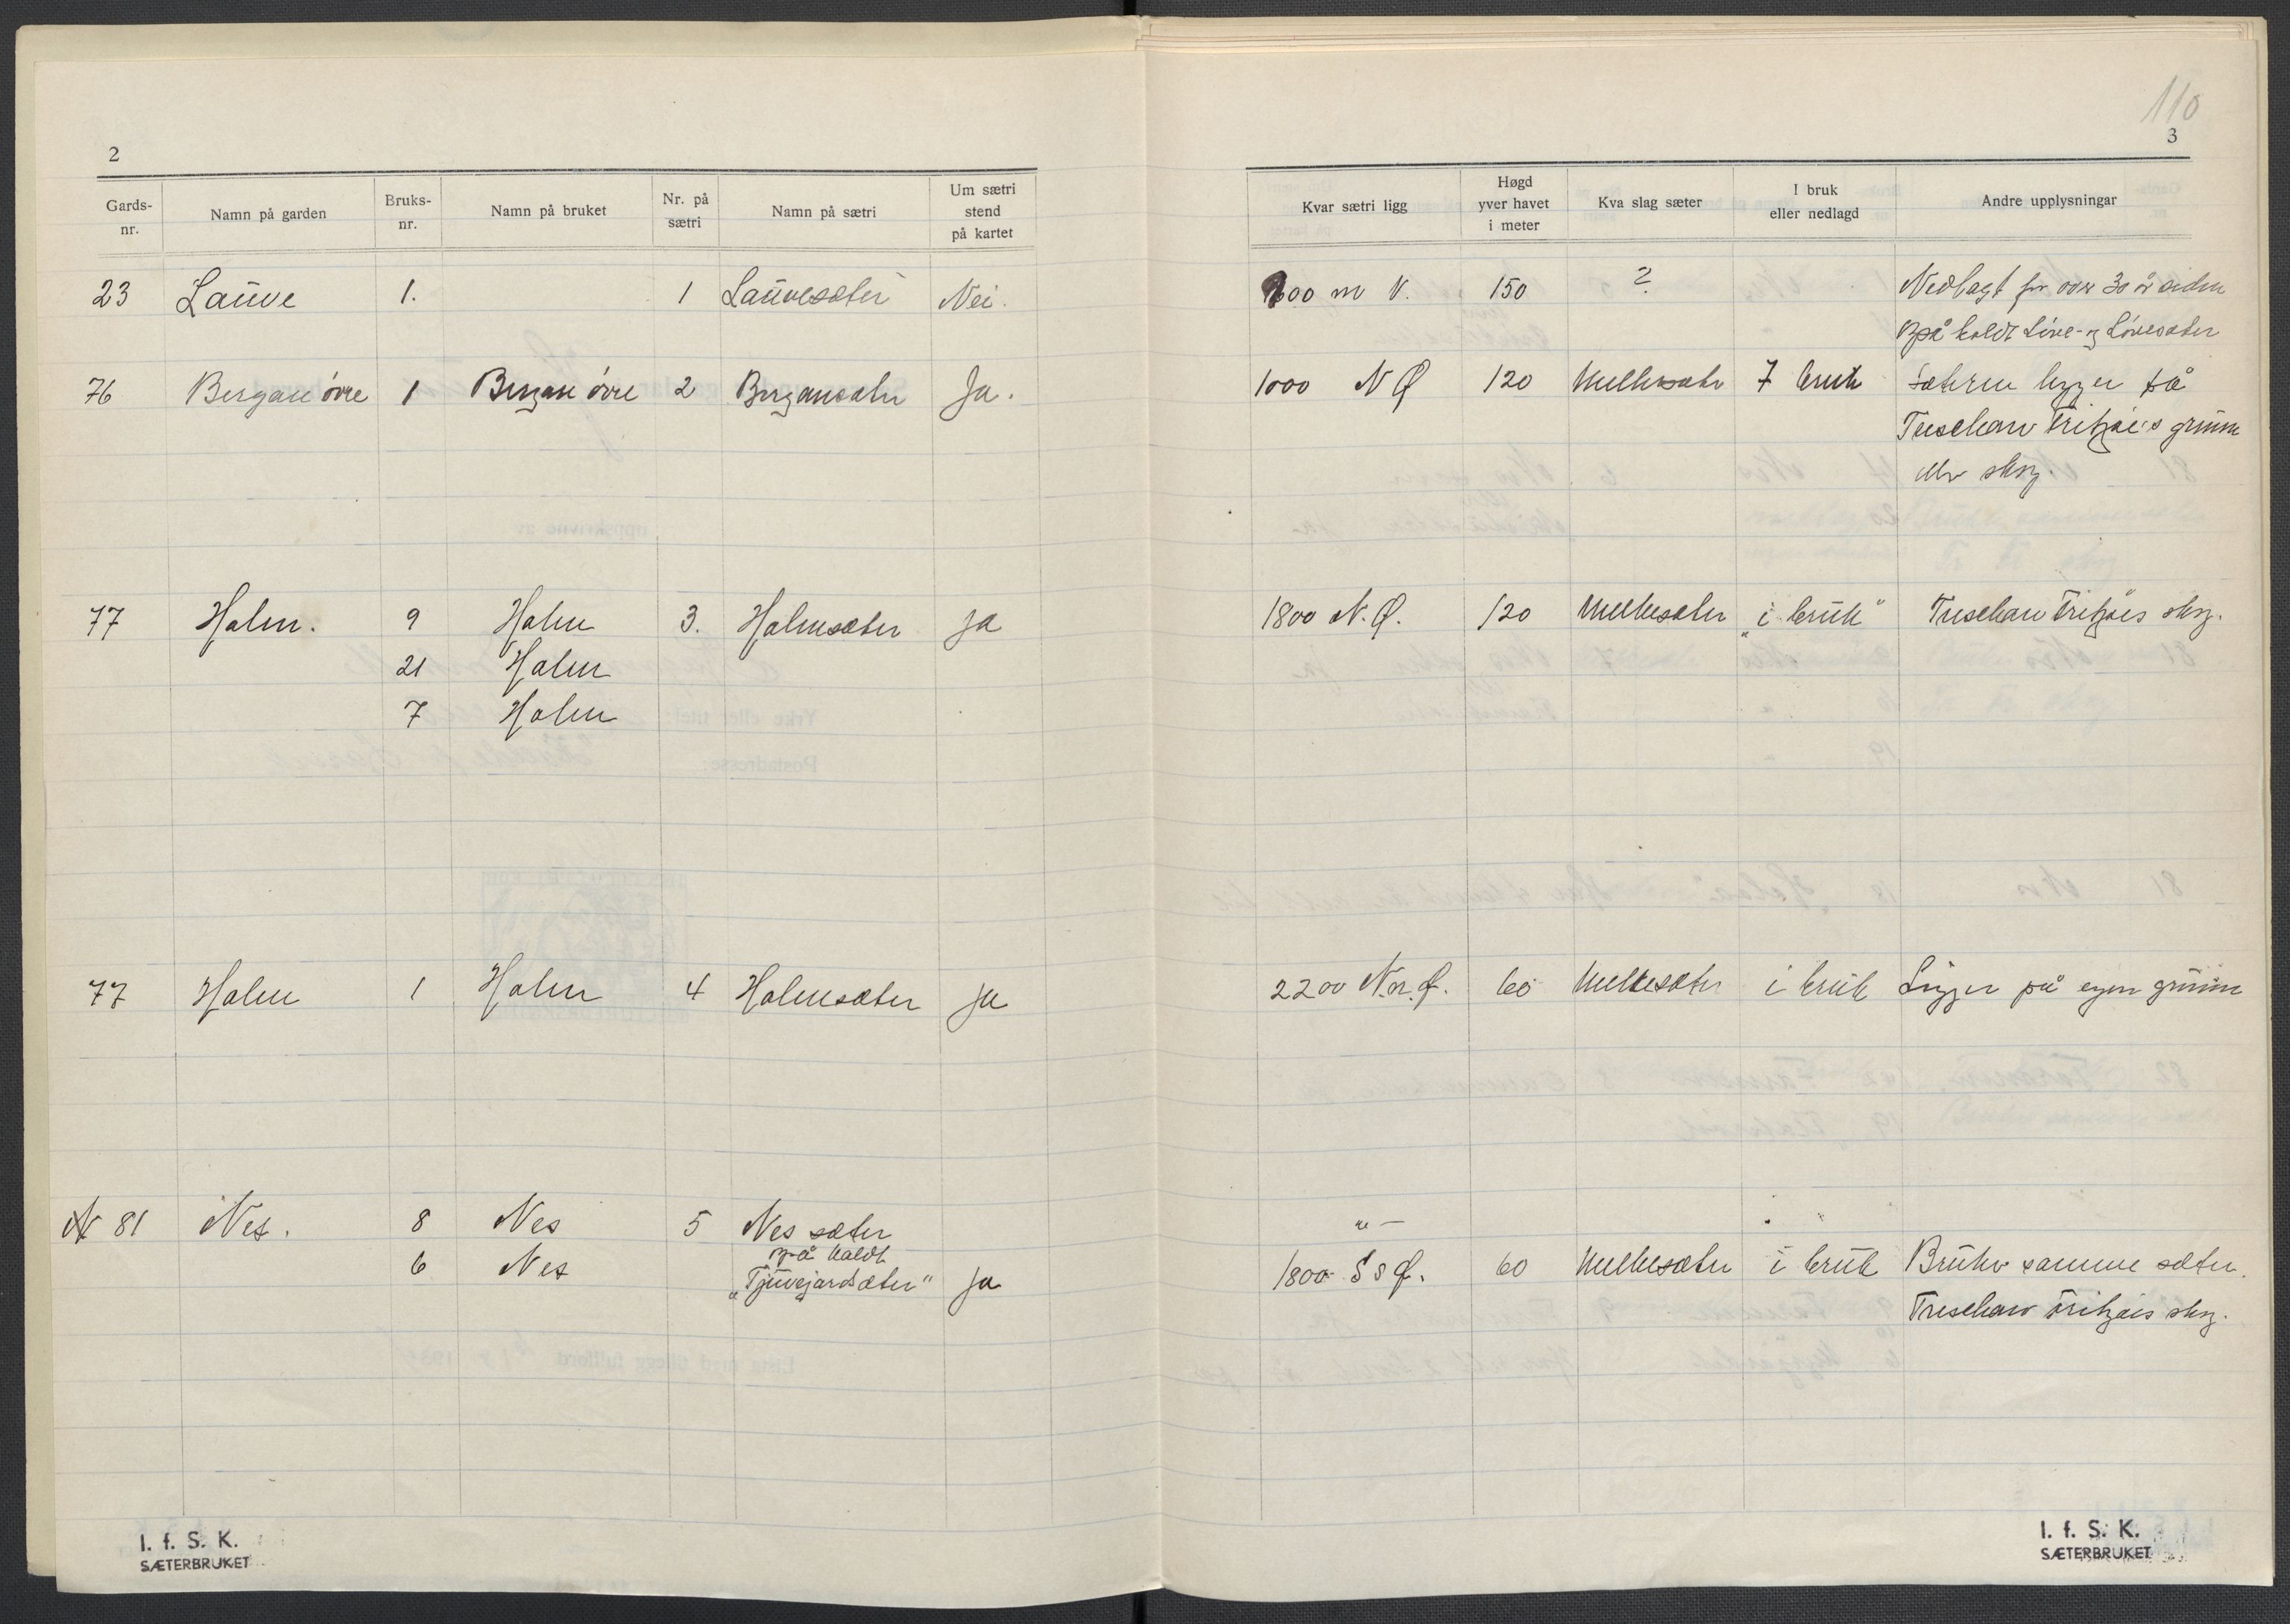 2
Gards-nr. Namn på garden Bruks-nr. Namn på bruket Nr. på sætri Namn på sætri Um sætri stend på kartet
23 Lauve 1. 1 Lauvesæter Nei.
76 Bergan övre 1 Bergan övre 2 Bergansæter Ja.
77 Holm. 9 Holm 3. Holmsæter ja
21 Holm
7 Holm
77 Holm 1 Holm 4 Holmsæter ja
N 81 Nes. 8 Nes 5 Nes sæter
også kaldt
6 Nes „Tjuvejordsæter" ja
I. f. S. K.
SÆTERBRUKET
110
3
Kvar sætri ligg Høgd yver havet i meter Kva slag sæter I bruk eller nedlagd Andre upplysningar
00 m V. 150 ? Nedlagt for over 30 år siden
også kaldt Löve- og Lövesæter
1000 N Ø 120 Melkesæter I bruk Sæteren ligger på
Treschow Fritzöes grunn
eller skog.
1800 N.Ø. 120 Melkesæter „i bruk" Treschow Fritzöes skog.
2200 N.n.Ø. 60 Melkesæter i bruk Ligger på egen grunn
1800 S s Ø. 60 Melkesæter i bruk Bruker samme sæter.
Treschow Fritzöes skog.
I. f. S. K.
SÆTERBRUKET